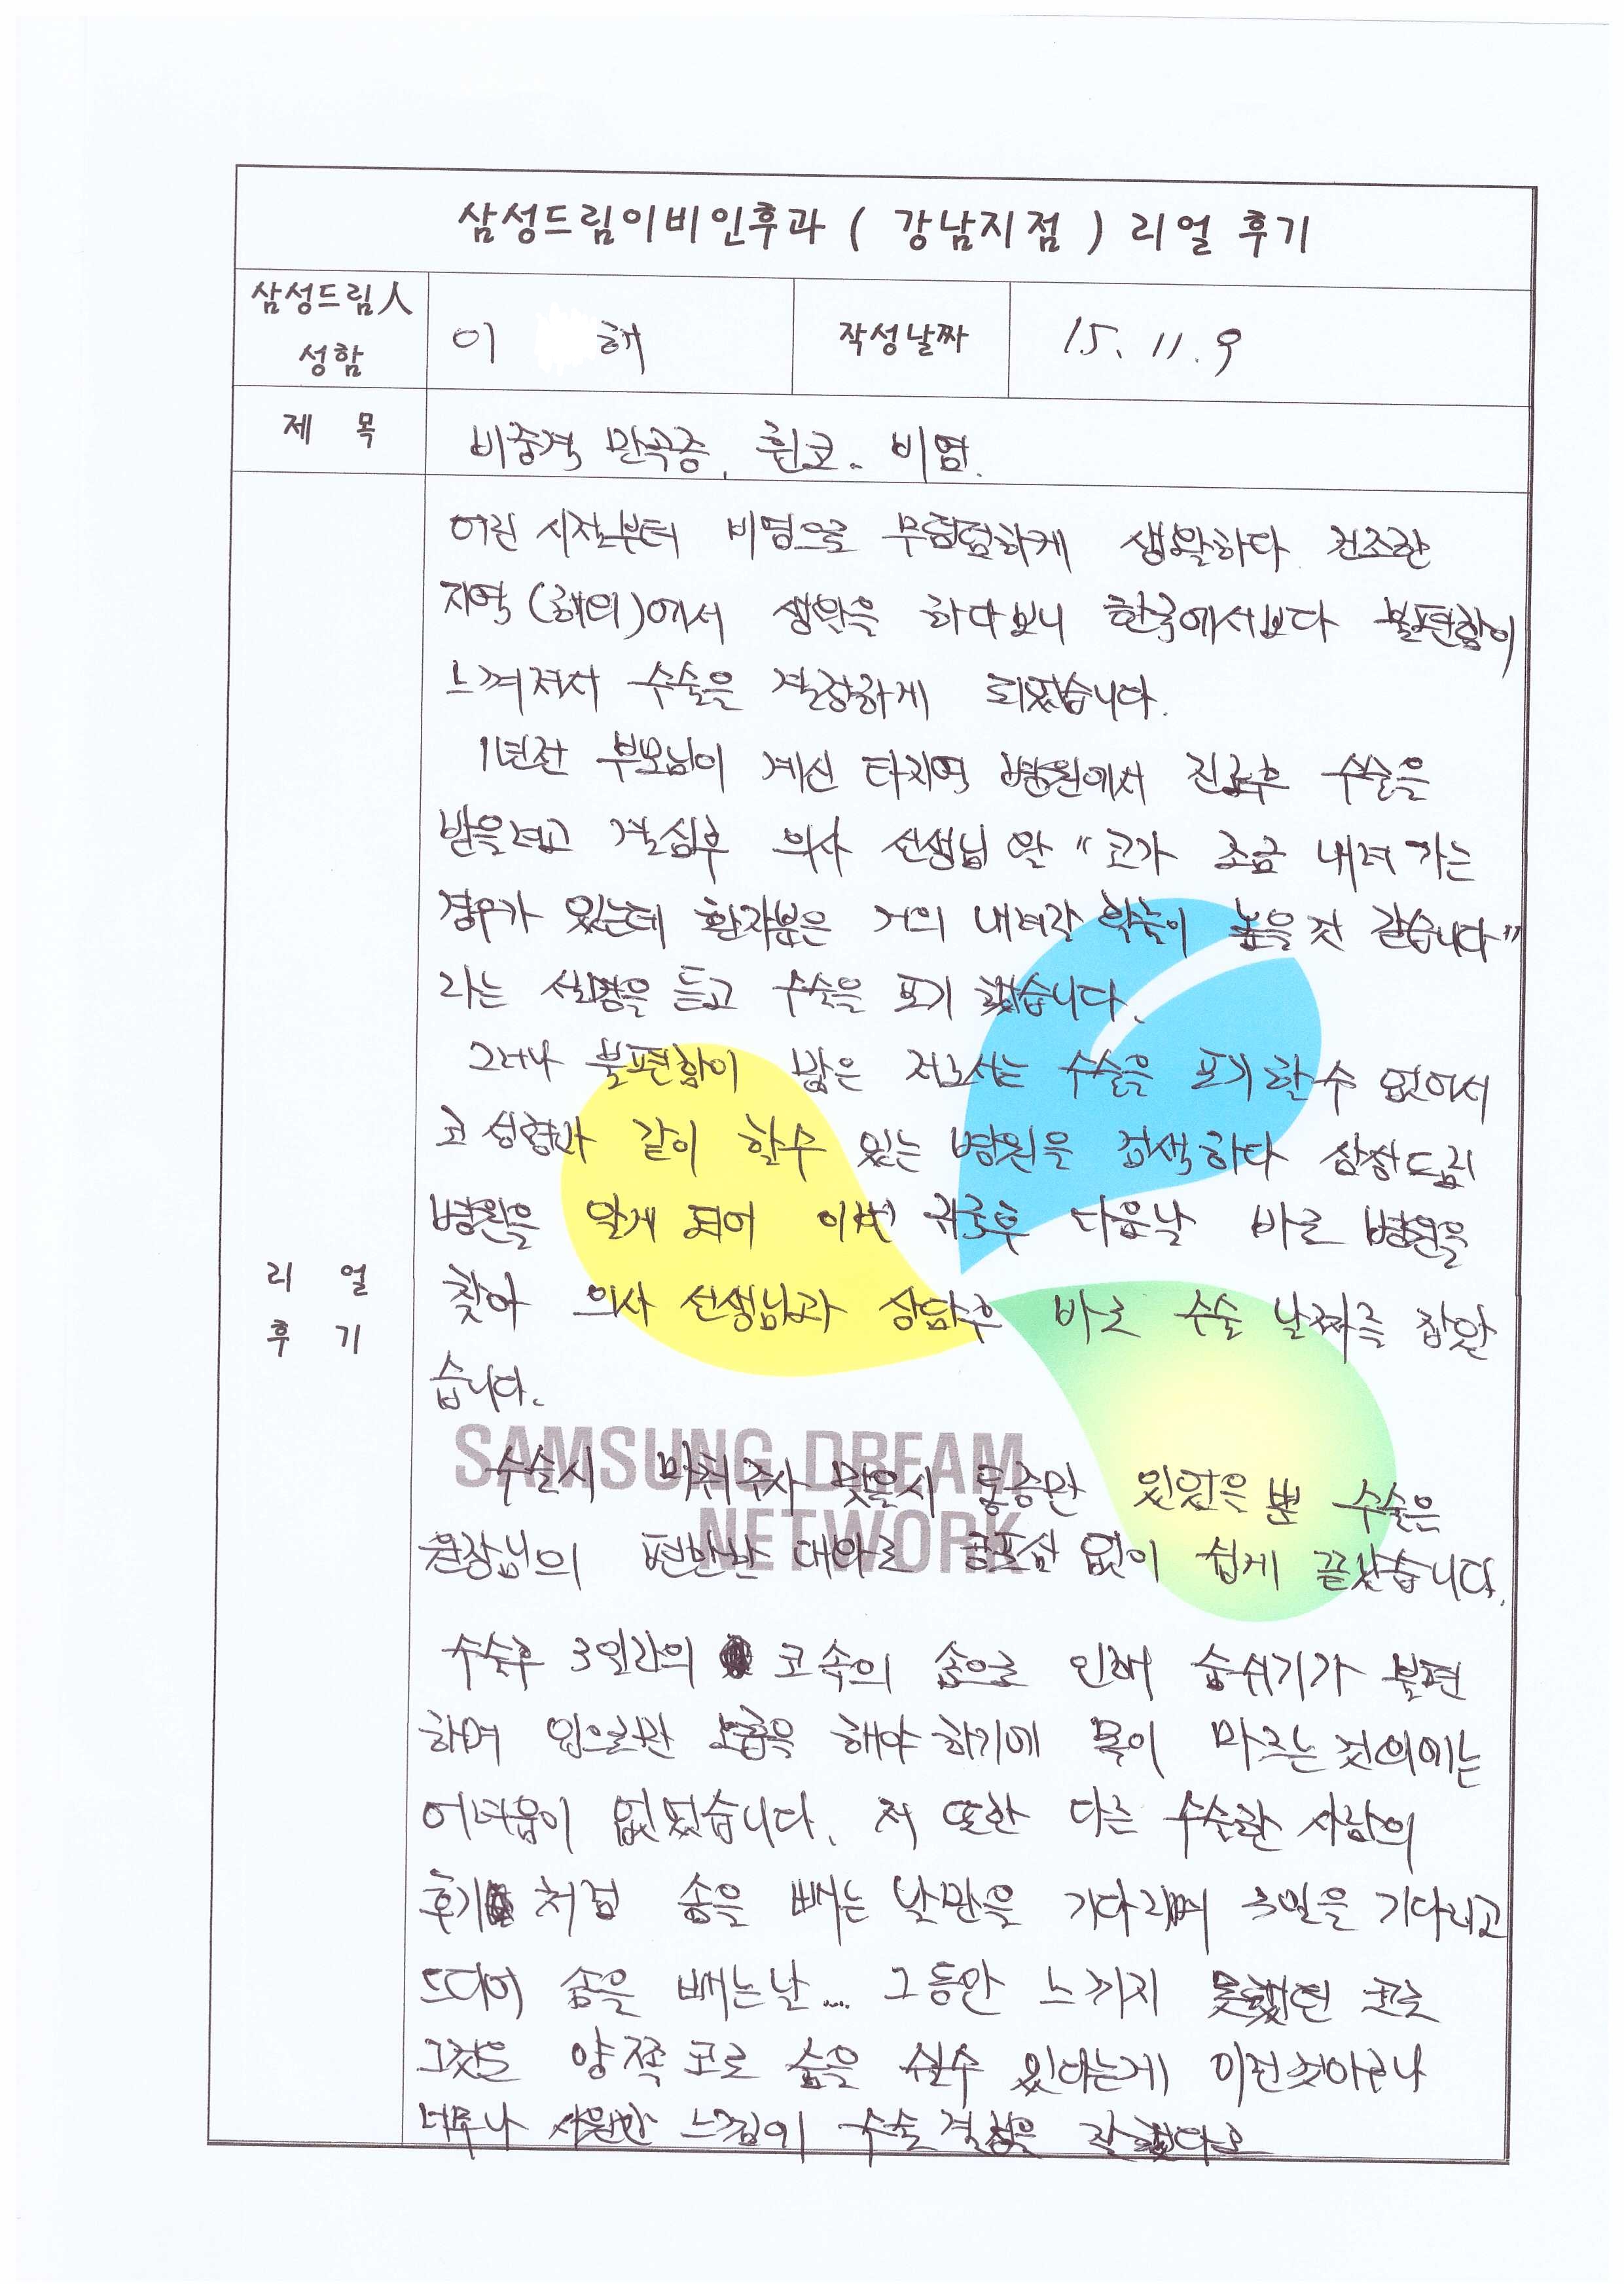 삼성드림이비인후과 ( 강남지점 ) 리얼 후기
삼성드림人
성함
이 해
작성날짜
15. 11. 9
제 목
비중격 만곡증, 휜코. 비염.
리 얼
후 기
어린 시절부터 비염으로 무덤덤하게 생활하다 건조한
지역 (해외)에서 생활을 하다보니 한국에서보다 불편함이
느껴져서 수술을 결정하게 되었습니다.
1년전 부모님이 계신 타지역 병원에서 진료후 수술을
받을려고 결심후 의사 선생님 왈 "코가 조금 내려 가는
경우가 있는데 환자분은 거의 내려갈 확률이 높을 것 같습니다"
라는 설명을 듣고 수술을 포기 했습니다.
그러나 불편함이 많은 저로서는 수술을 포기 할 수 없어서
코 성형과 같이 할수 있는 병원을 검색하다 삼성드림
병원을 알게 되어 이번 귀국후 다음날 바로 병원을
찾아 의사 선생님과 상담후 바로 수술 날짜를 잡았
습니다.
SAMSUNG DREAM
NETWORK
수술시 마취주사 맞을시 통증만 있었을 뿐 수술은
원장님의 편안한 대화로 공포심 없이 쉽게 끝났습니다.
수술후 3일간의 코 속의 솜으로 인해 숨쉬기가 불편
하며 입으로만 호흡을 해야 하기에 목이 마르는 것외에는
어려움이 없었습니다. 저 또한 다른 수술한 사람의
후기 처럼 솜을 빼는 날만을 기다리며 3일을 기다리고
드디어 솜을 빼는날... 그동안 느끼지 못했던 코로
그것도 양쪽 코로 숨을 쉴수 있다는게 이런것이구나
너무나 시원한 느낌이 수술 결정을 잘 했다고